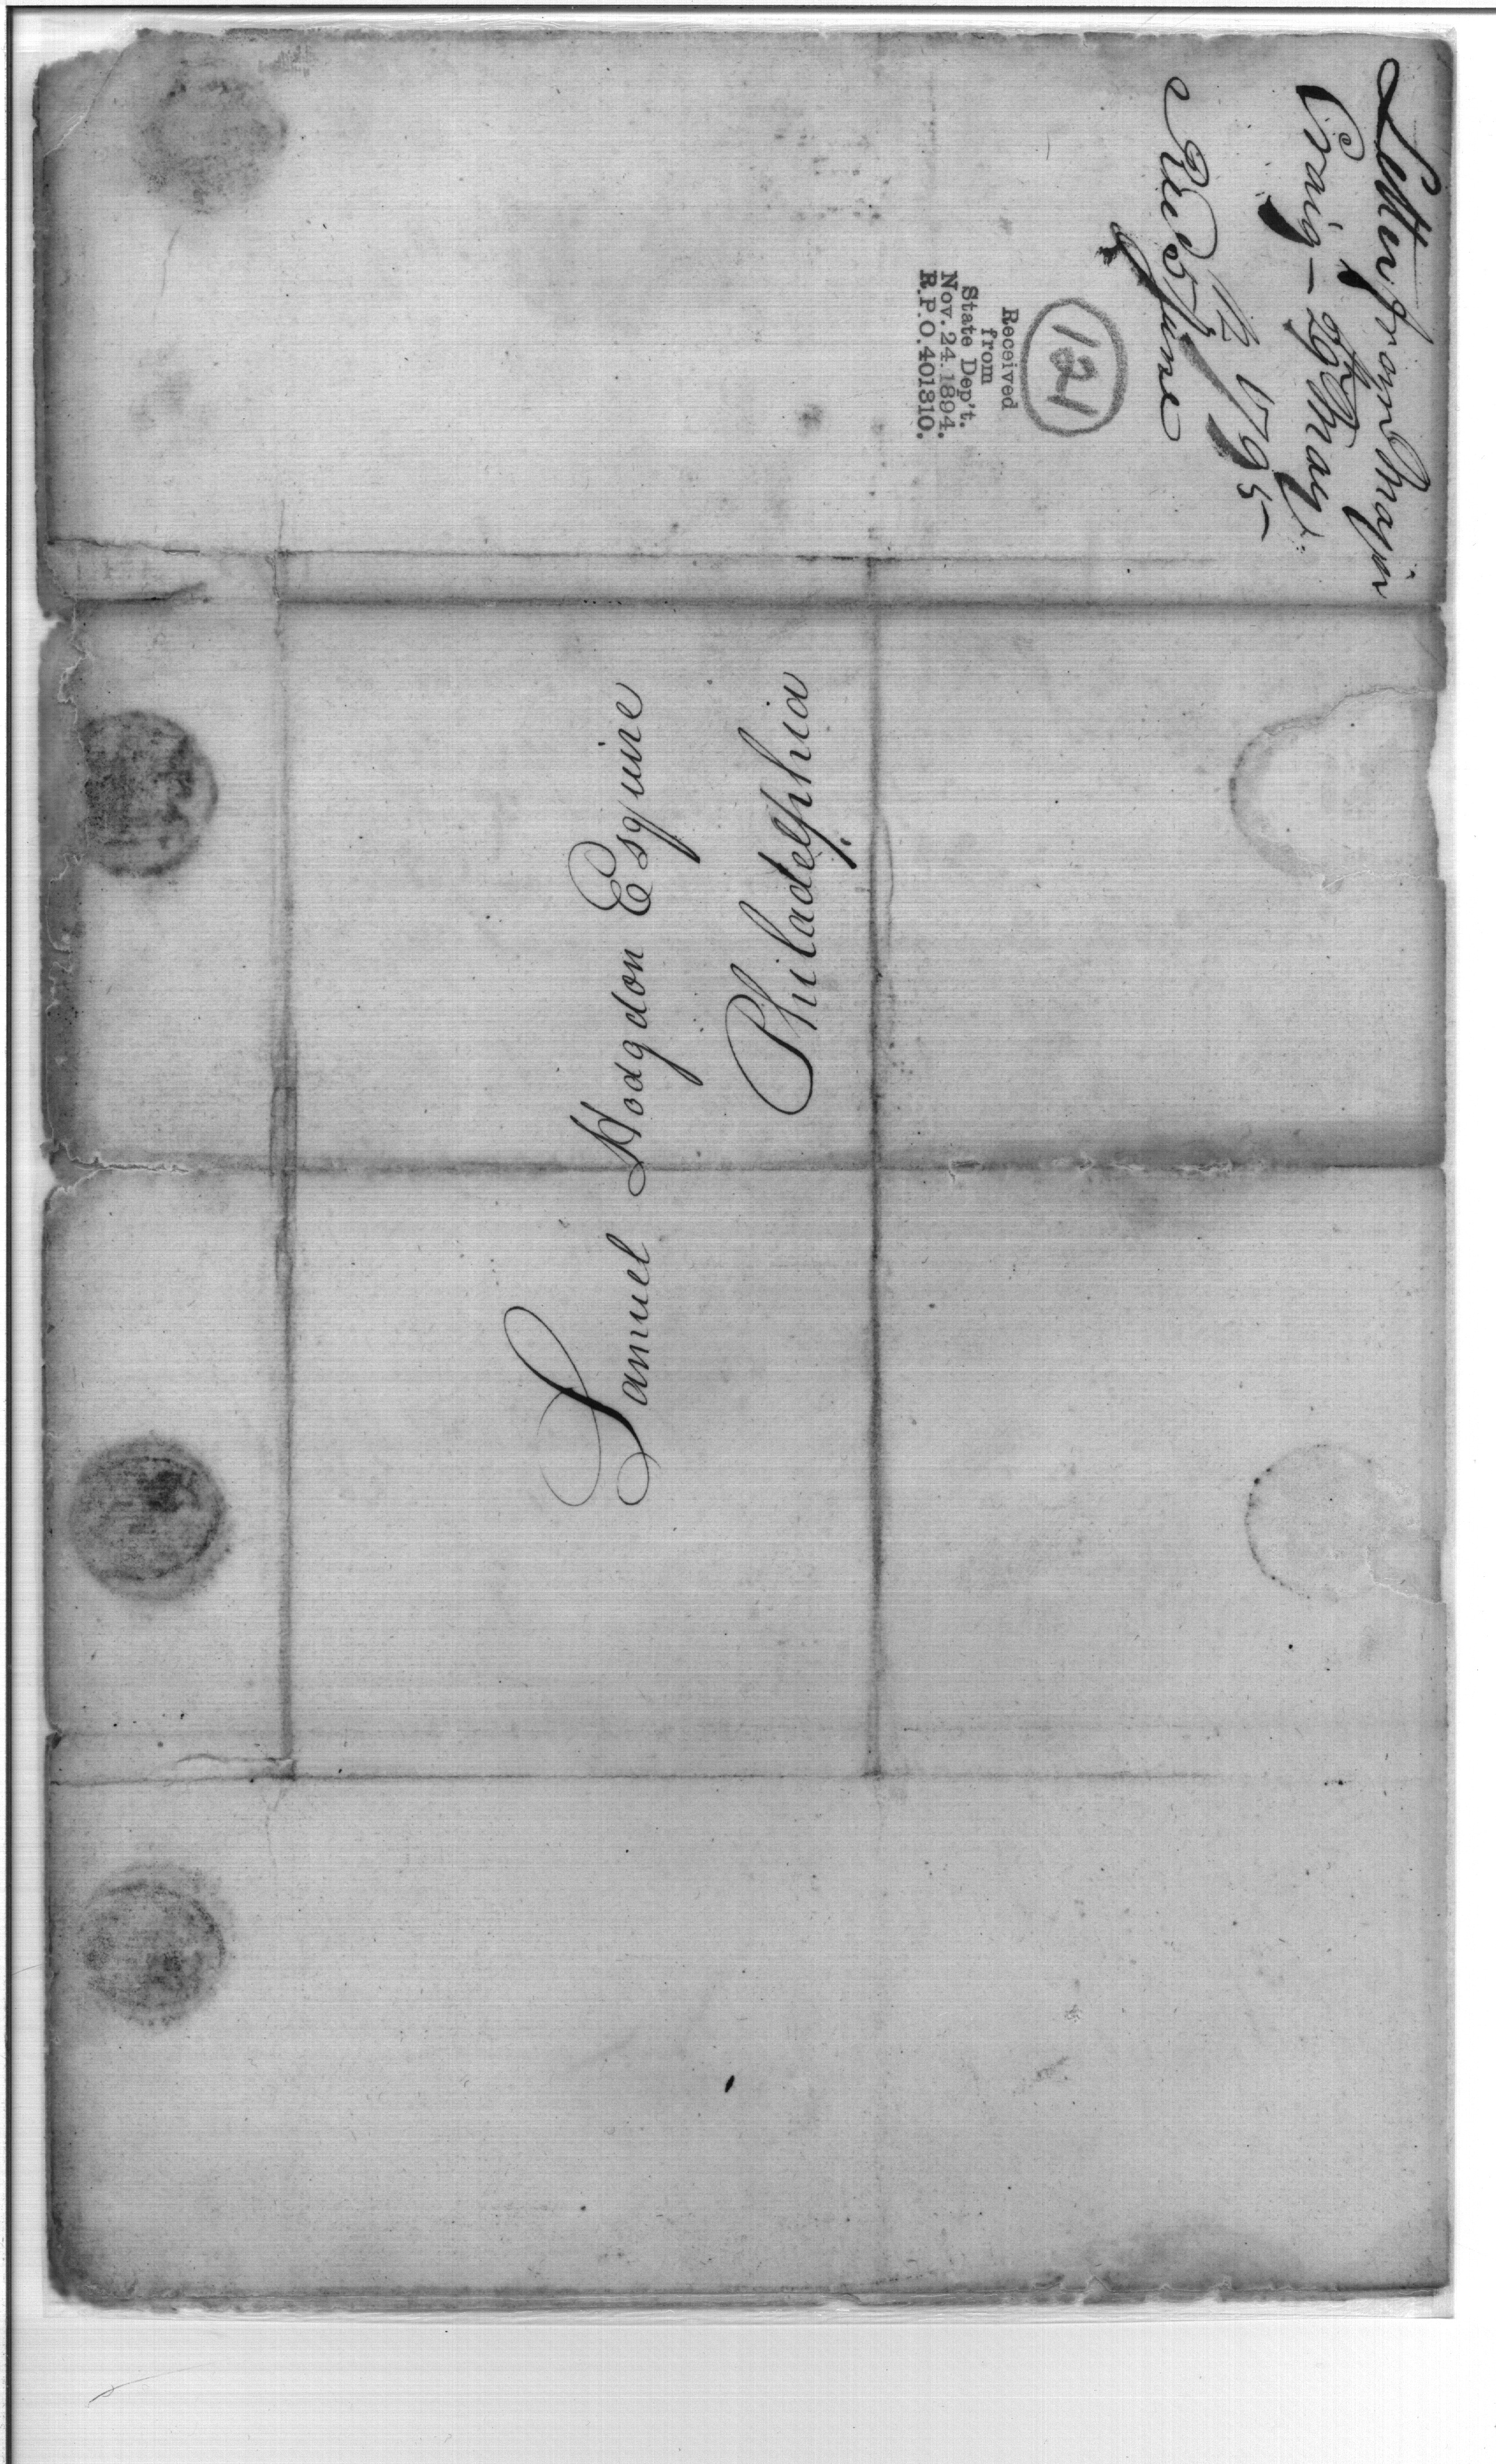 Letter from Major
Craig — 26th May
1795 —
Rec'd 5 June
121
Received
from
State Dep't.
Nov. 24. 1894.
R.P.O. 401310.
Samuel Hodgdon Esquire
Philadelphia